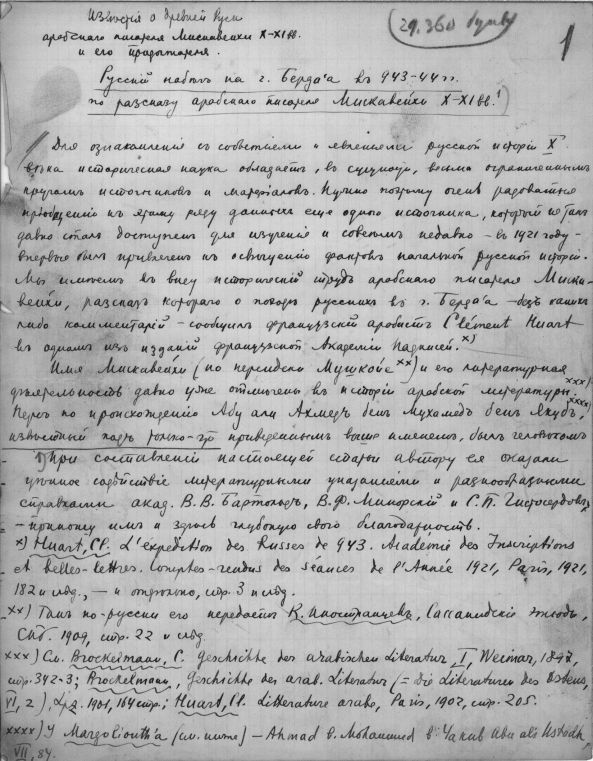 Известія о древней Руси
арабскаго писателя Мискавейхи X-XI вв.
и его продолжателя.
29.360 букв
1
Русскій набѣгъ на г. Берда'а въ 943-44 гг.
по разсказу арабскаго писателя Мискавейхи X-XI вв.¹)
Для ознакомленія съ событіями и явленіями русской исторіи X
вѣка историческая наука обладаетъ, въ сущности, весьма ограниченнымъ
кругомъ источниковъ и матеріаловъ. Нужно поэтому очень радоваться
пріобщенію къ этому ряду данныхъ еще одного источника, который не такъ
давно сталъ доступенъ для изученія и совсѣмъ недавно – въ 1921 году –
впервые былъ привлеченъ къ освѣщенію фактовъ начальной русской исторіи.
Мы имѣемъ въ виду историческій трудъ арабскаго писателя Миска-
вейхи, разсказъ котораго о походѣ русскихъ въ г. Берда'а – безъ какихъ
либо комментарій – сообщилъ французскій арабистъ Clément Huart
въ одномъ изъ изданій французской Академіи Надписей.x)
Имя Мискавейхи (по персидски Мушкойе xx) и его литературная
дѣятельность давно уже отмѣчены въ исторіи арабской литературы.xxx)
Персъ по происхожденію Абу али Ахмедъ бенъ Мухамедъ бенъ Якубъ,xxxx)
извѣстный подъ только-что приведеннымъ выше именемъ, былъ человѣкомъ
¹) При составленіи настоящей статьи автору ея оказали
цѣнное содѣйствіе литературными указаніями и разнообразными
справками акад. В.В. Бартольдъ, В.Ф. Минорскій и С.П. Чистосердовъ
– приношу имъ и здѣсь глубокую свою благодарность.
x) Huart, Cl. L'expédition des Russes de 943. Académie des Inscriptions
et belles-lettres. Comptes-rendus des séances de l'Année 1921, Paris, 1921,
182 и слѣд., – и отдѣльно, стр. 3 и слѣд.
xx) Такъ по-русски его передаетъ К. Иностранцевъ, Сассанидскіе этюды,
Спб. 1909, стр. 22 и слѣд.
xxx) См. Brockelmann, C. Geschichte der arabischen Literatur, I, Weimar, 1897,
стр. 342-3; Brockelmann, Geschichte der arab. Literatur (= Die Literaturen des Ostens,
VI, 2), Lpz. 1901, 164 стр.; Huart, Cl. Littérature arabe, Paris, 1902, стр. 205.
xxxx) У Margoliouth'a (см. ниже) – Ahmad b. Mohammed b. Yakub Abu ali Ustadh
VII, 84.